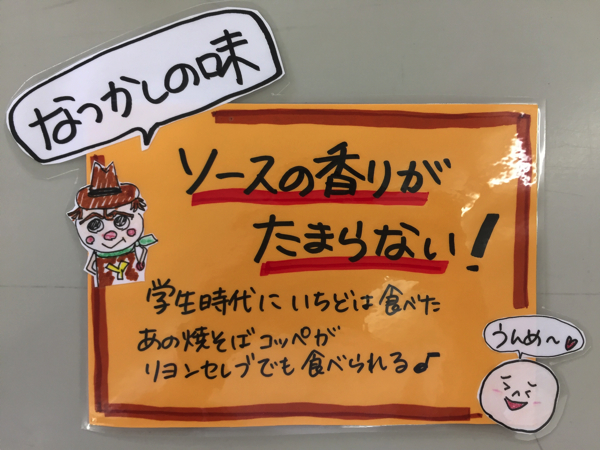 なつかしの味
ソースの香りが
たまらない!
学生時代にいちどは食べた
あの焼そばコッペが
リヨンセレブでも食べられる♪
Y
うんめ〜♥